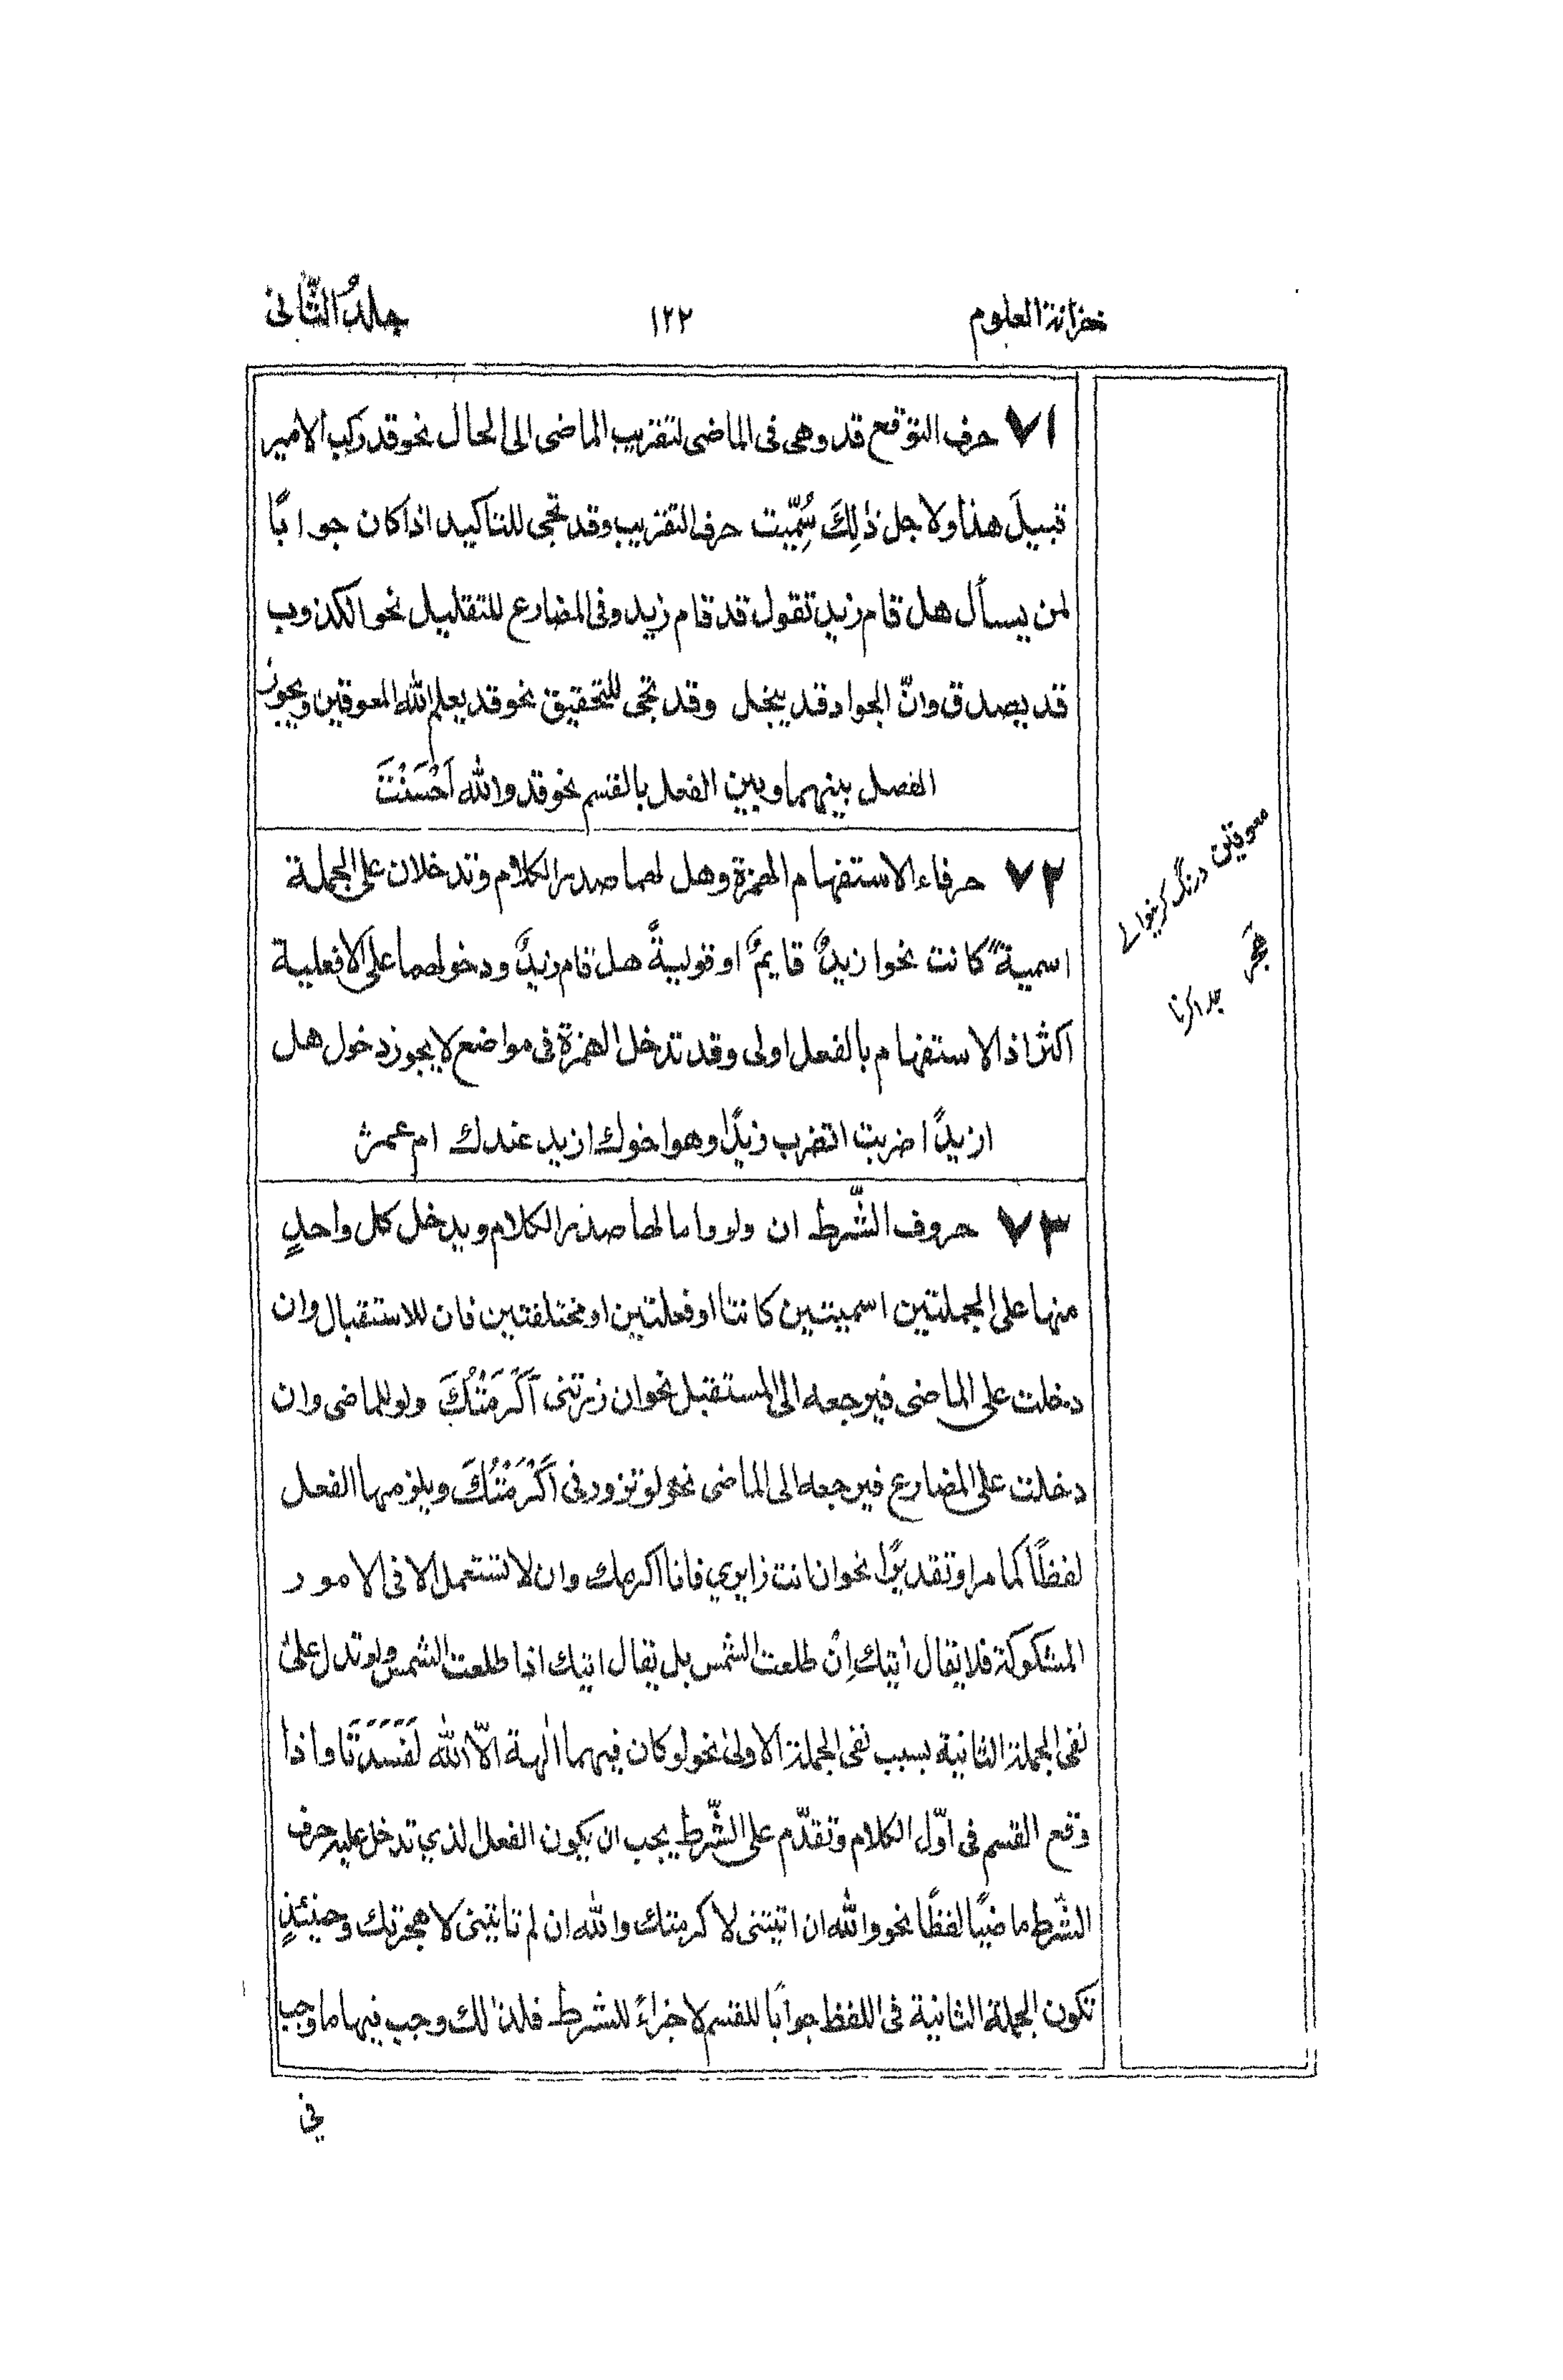 خزانة العلوم
١٢٢
جلدُ الثّانى
٧١ حرف التوقع قد وهى فى الماضى لتقريب الماضى الى الحال نحو قد ركب الامير
قبيلَ هذا ولاجل ذٰلِكَ سُمِّيت حرف التقريب وقد تجى للتاكيد اذا كان جوابًا
لمن يسأل هل قام زيد تقول قد قام زيد وفى المضارع للتقليل نحو الكذوب
قد يصدق وانّ الجواد قد يبخل وقد تجى للتحقيق نحو قد يعلم الله المعوقين ويجوز
الفصل بينهما وبين الفعل بالقسم نحو قد والله اَحْسَنْتَ
٧٢ حرفاء الاستفهام الهمزة وهل لهما صدر الكلام وتدخلان على الجملة
اسميةً كانت نحو ازيدٌ قايمٌ او قوليةً هل قام زيدٌ ودخولهما على الافعلية
اكثر اذ الاستفهام بالفعل اولى وقد تدخل الهمزة فى مواضع لا يجوز دخول هل
ازيدًا ضربت اتضرب زيدًا وهو اخوك ازيد عندك ام عمرٌ
٧٣ حروف الشّرط ان ولو واما لها صدر الكلام ويدخل كل واحدٍ
منها على الجملتين اسميتين كانتا او فعلتين او مختلفتين فان للاستقبال وان
دخلت على الماضى فيرجعه الى المستقبل نحو ان زرتنى اَكْرَمْتُكَ ولو للماضى وان
دخلت على المضارع فيرجعه الى الماضى نحو لو تزورنى اَكْرَمْتُكَ ويلزمها الفعل
لفظًا كما مر او تقديرًا نحو ان انت زايري فانا اكرمك وان لا تستعمل الا فى الامور
المشكوكة فلا يقال اتيك اِن طلعت الشمس بل يقال اتيك اذا طلعت الشمس ولو تدل على
نفى الجملة الثانية بسبب نفى الجملة الاولىٰ نحو لو كان فيهما اٰلهة الّا الله لَفَسَدَتَا واذا
وقع القسم فى اوّل الكلام وتقدّم على الشّرط يجب ان يكون الفعل الذي تدخل عليه حرف
الشرط ماضيًا لفظًا نحو والله ان اتيتنى لاكرمتك والله ان لم تاتينى لاهجرتك وحينئذٍ
تكون الجملة الثانية فى اللفظ جوابًا للقسم لا جزاءً للشرط فلذالك وجب فيها ما وجب
فى
معوقين درنگ کرینوالے
هجَر
جدا کرنا